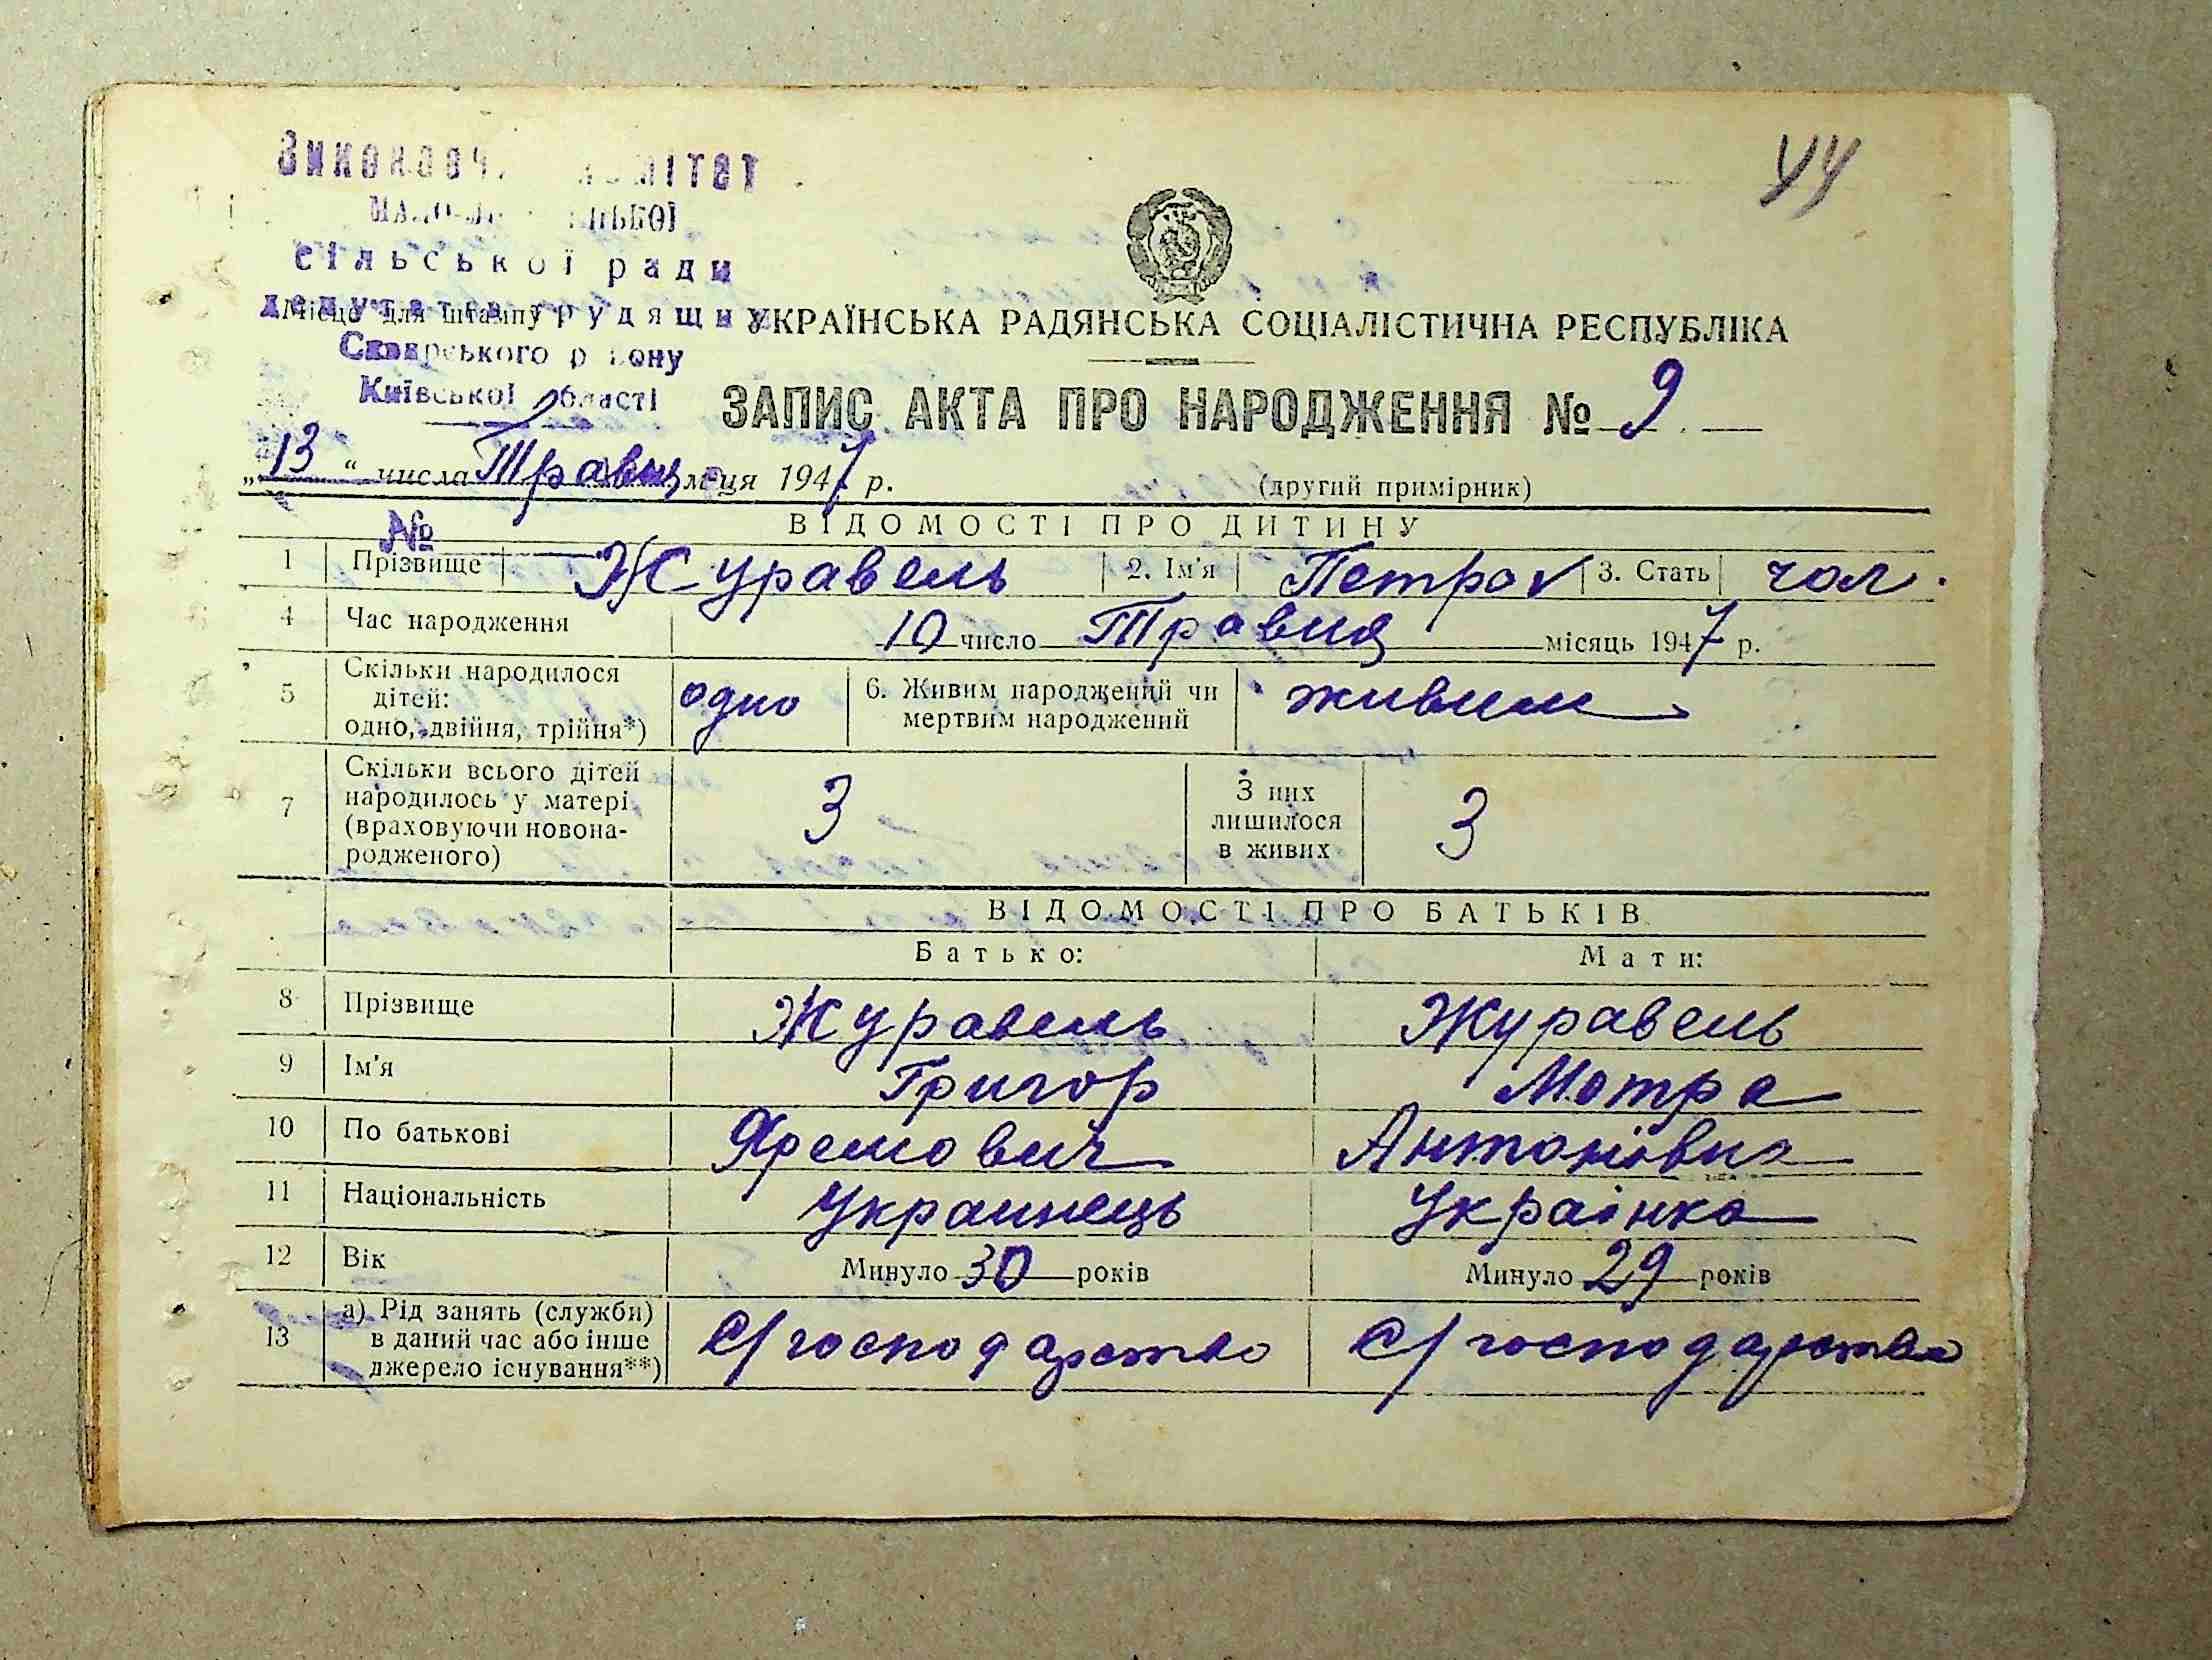 44
сільської ради
депутатів трудящих
Місце для штампу
Сквирського району
Київської області
УКРАЇНСЬКА РАДЯНСЬКА СОЦІАЛІСТИЧНА РЕСПУБЛІКА
ЗАПИС АКТА ПРО НАРОДЖЕННЯ № 9
„13“ числа Травня м-ця 1947 р.
(другий примірник)
№
ВІДОМОСТІ ПРО ДИТИНУ
1 Прізвище Журавель 2. Ім'я Петро 3. Стать чол.
4 Час народження 10 число Травня місяць 1947 р.
5 Скільки народилося дітей: одно, двійня, трійня*) одно 6. Живим народжений чи мертвим народжений живим
7 Скільки всього дітей народилось у матері (враховуючи новонародженого) 3 З них лишилося в живих 3
ВІДОМОСТІ ПРО БАТЬКІВ
Батько: Мати:
8 Прізвище Журавель Журавель
9 Ім'я Григор Мотра
10 По батькові Яремович Антонівна
11 Національність Украинець Украінка
12 Вік Минуло 30 років Минуло 29 років
13 а) Рід занять (служби) в даний час або інше джерело існування**) С/господарство С/господарство